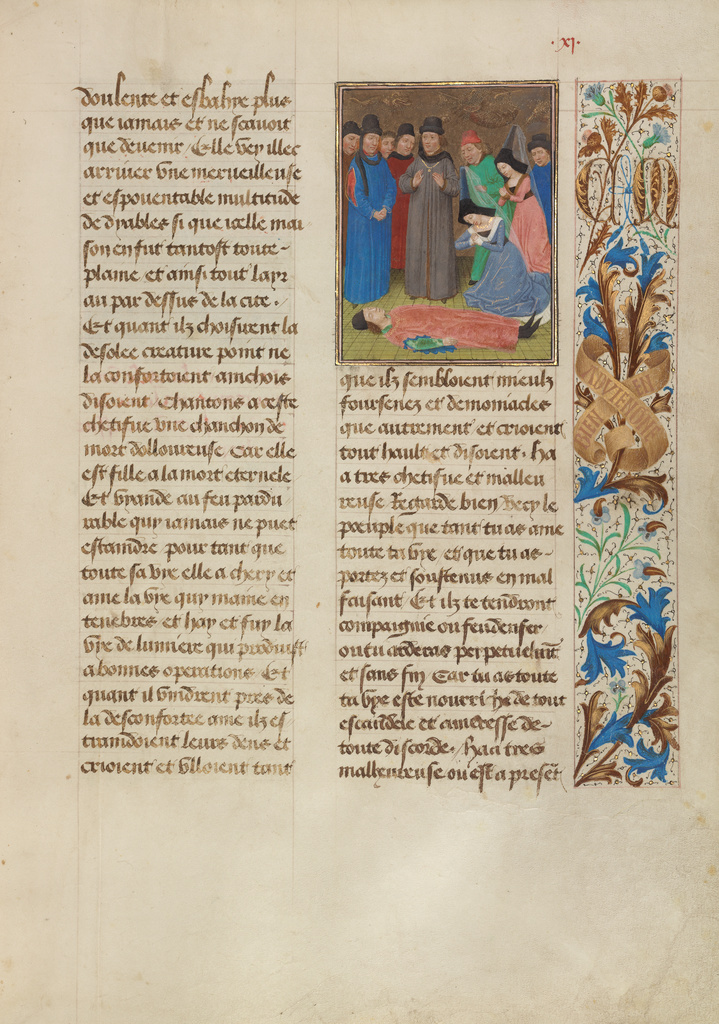 ·xj·
doulente et esbahye plus
que iamais et ne scauoit
que deuenir / Elle vey illec
arriuer vne merueilleuse
et espouentable multitude
de dyables si que icelle mai
son en fut tantost toute
plaine et ainsi tout layr
au par dessus de la cite.
Et quant ilz choisirent la
desolee creature point ne
la confortoient ainchois
disoient / Chantons a ceste
chetifue vne chanchon de
mort dolloureuse Car elle
est fille a la mort eternele
Et vyande au feu pardu
rable quy iamais ne puet
estaindre pour tant que
toute sa vye elle a chery et
ame la vye quy maine en
tenebres et hay et fuy la
vye de lumiere qui produist
a bonnes operations Et
quant il vindrent pres de
la desconfortee ame ilz es
traindoient leurs dens et
crioient et vlloient tant
que ilz sembloient mieulz
foursenez et demoniacles
que autrement et crioient
tout hault et disoient. Ha
a tres chetifue et malleu
reuse Regarde bien Vecy le
poeuple que tant tu as ame
toute ta vye et que tu as-
portez et soustenus en mal
faisant Et ilz te tendront
compaignie ou feu denfer
ou tu arderas perpetuelmt
et sans fin Car tu as toute
ta vye este nourriche de tout
escandele et aincresse de-
toute discorde. Haa tres
malheureuse ou est a present